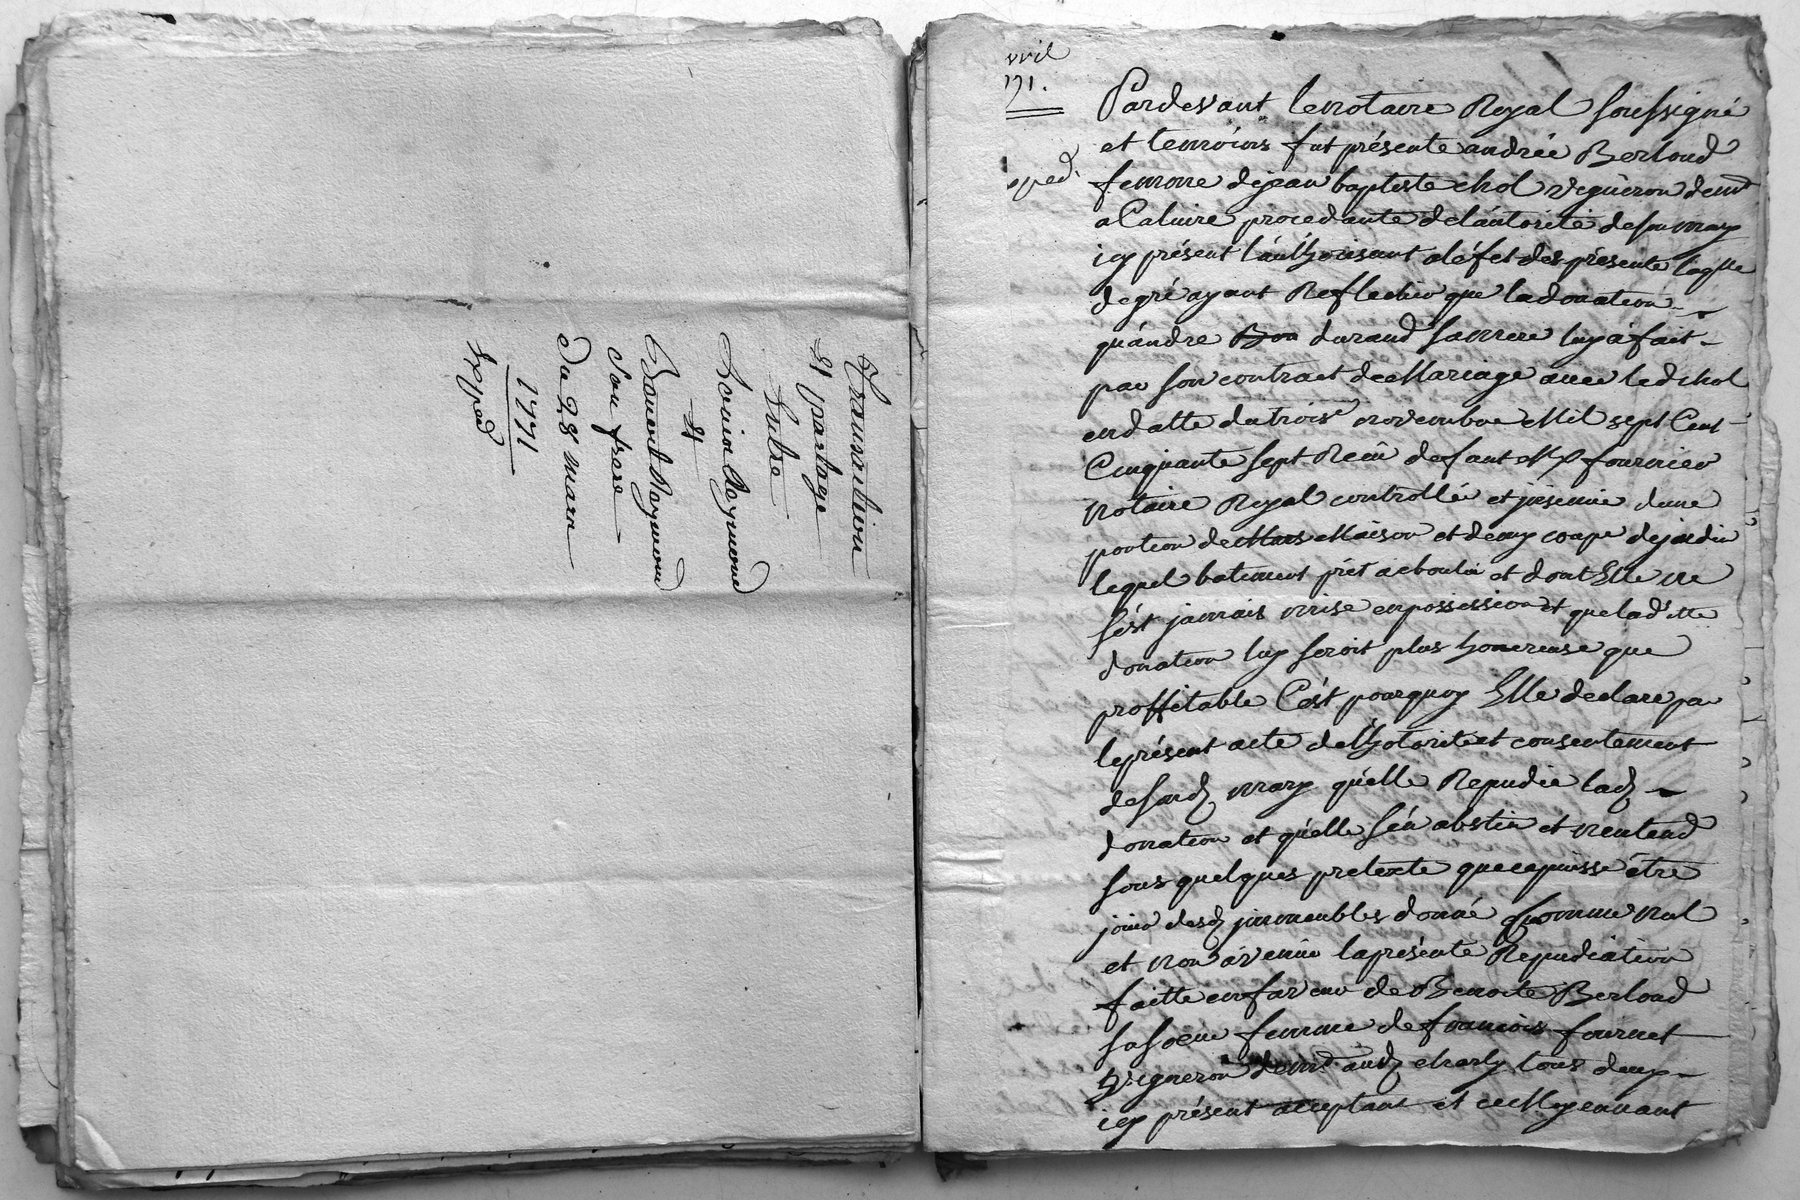 Transaction
Et partage
Entre
Louis Reymond
Et
Benoit Reymond
Son frere
Du 28 mars
1771
Exped
vril
171.
Pardevant le notaire Royal soussigné
et temoins fut présente andrée Berloud
femme de jean baptiste chol vigneron demt
a Caluire procedante de l'autorité de son mary
icy présent l'authorisant a l'éfet des présente laqlle
de gré ayant Reflechie que la donation
qu'andre Bon durand sa mere luy à fait
par son contract de Mariage avec led chol
en datte du trois novembre Mil sept Cent
Cinquante sept Reçû defunt Me fournier
notaire Royal controllé et jnsinué d'une
portion de Maison et demy coupe de jardin
lequel batiment prêt a eboulé et dont Elle ne
s'ést jamais mise en possession et que laditte
donation luy seroit plus honereuse que
proffitable C'ést pourquoy Elle declare par
le présent acte de l'hotorité et consentement
de sond mary qu'elle Repudie lad
donation et qu'elle s'en abstien et n'entend
sous quelques pretexte que ce puisse être
jouir desd jmmeubles donné comme nul
et non àvenue la présente Repudiation
faitte en faveur de Benoite Berloud
sa soeur femme de francois fournet
vigneron demt aud charly tous deux
icy présent acceptant et ce Moyennant